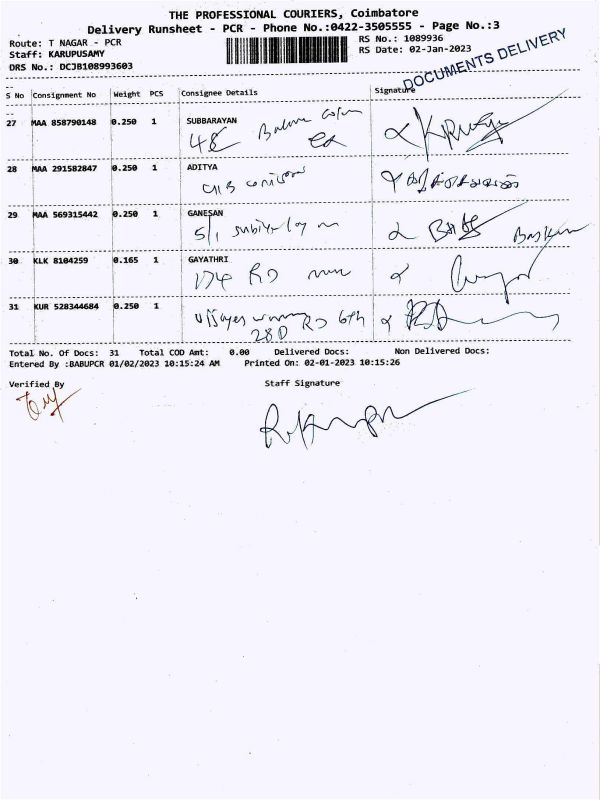 THE PROFESSIONAL COURIERS, Coimbatore
Delivery Runsheet - PCR - Phone No.:0422-3505555 - Page No.:3
Route: T NAGAR - PCR
RS No.: 1089936
Staff: KARUPUSAMY
RS Date: 02-Jan-2023
DRS No.: DCJB108993603
DOCUMENTS DELIVERY
S No Consignment No Weight PCS Consignee Details Signature
27 MAA 858790148 0.250 1 SUBBARAYAN
48
28 MAA 291582847 0.250 1 ADITYA
29 MAA 569315442 0.250 1 GANESAN
5/1
30 KLK 8104259 0.165 1 GAYATHRI
174 RD
31 KUR 528344684 0.250 1
RD 6th
28D
Total No. Of Docs: 31 Total COD Amt: 0.00 Delivered Docs: Non Delivered Docs:
Entered By :BABUPCR 01/02/2023 10:15:24 AM Printed On: 02-01-2023 10:15:26
Verified By Staff Signature